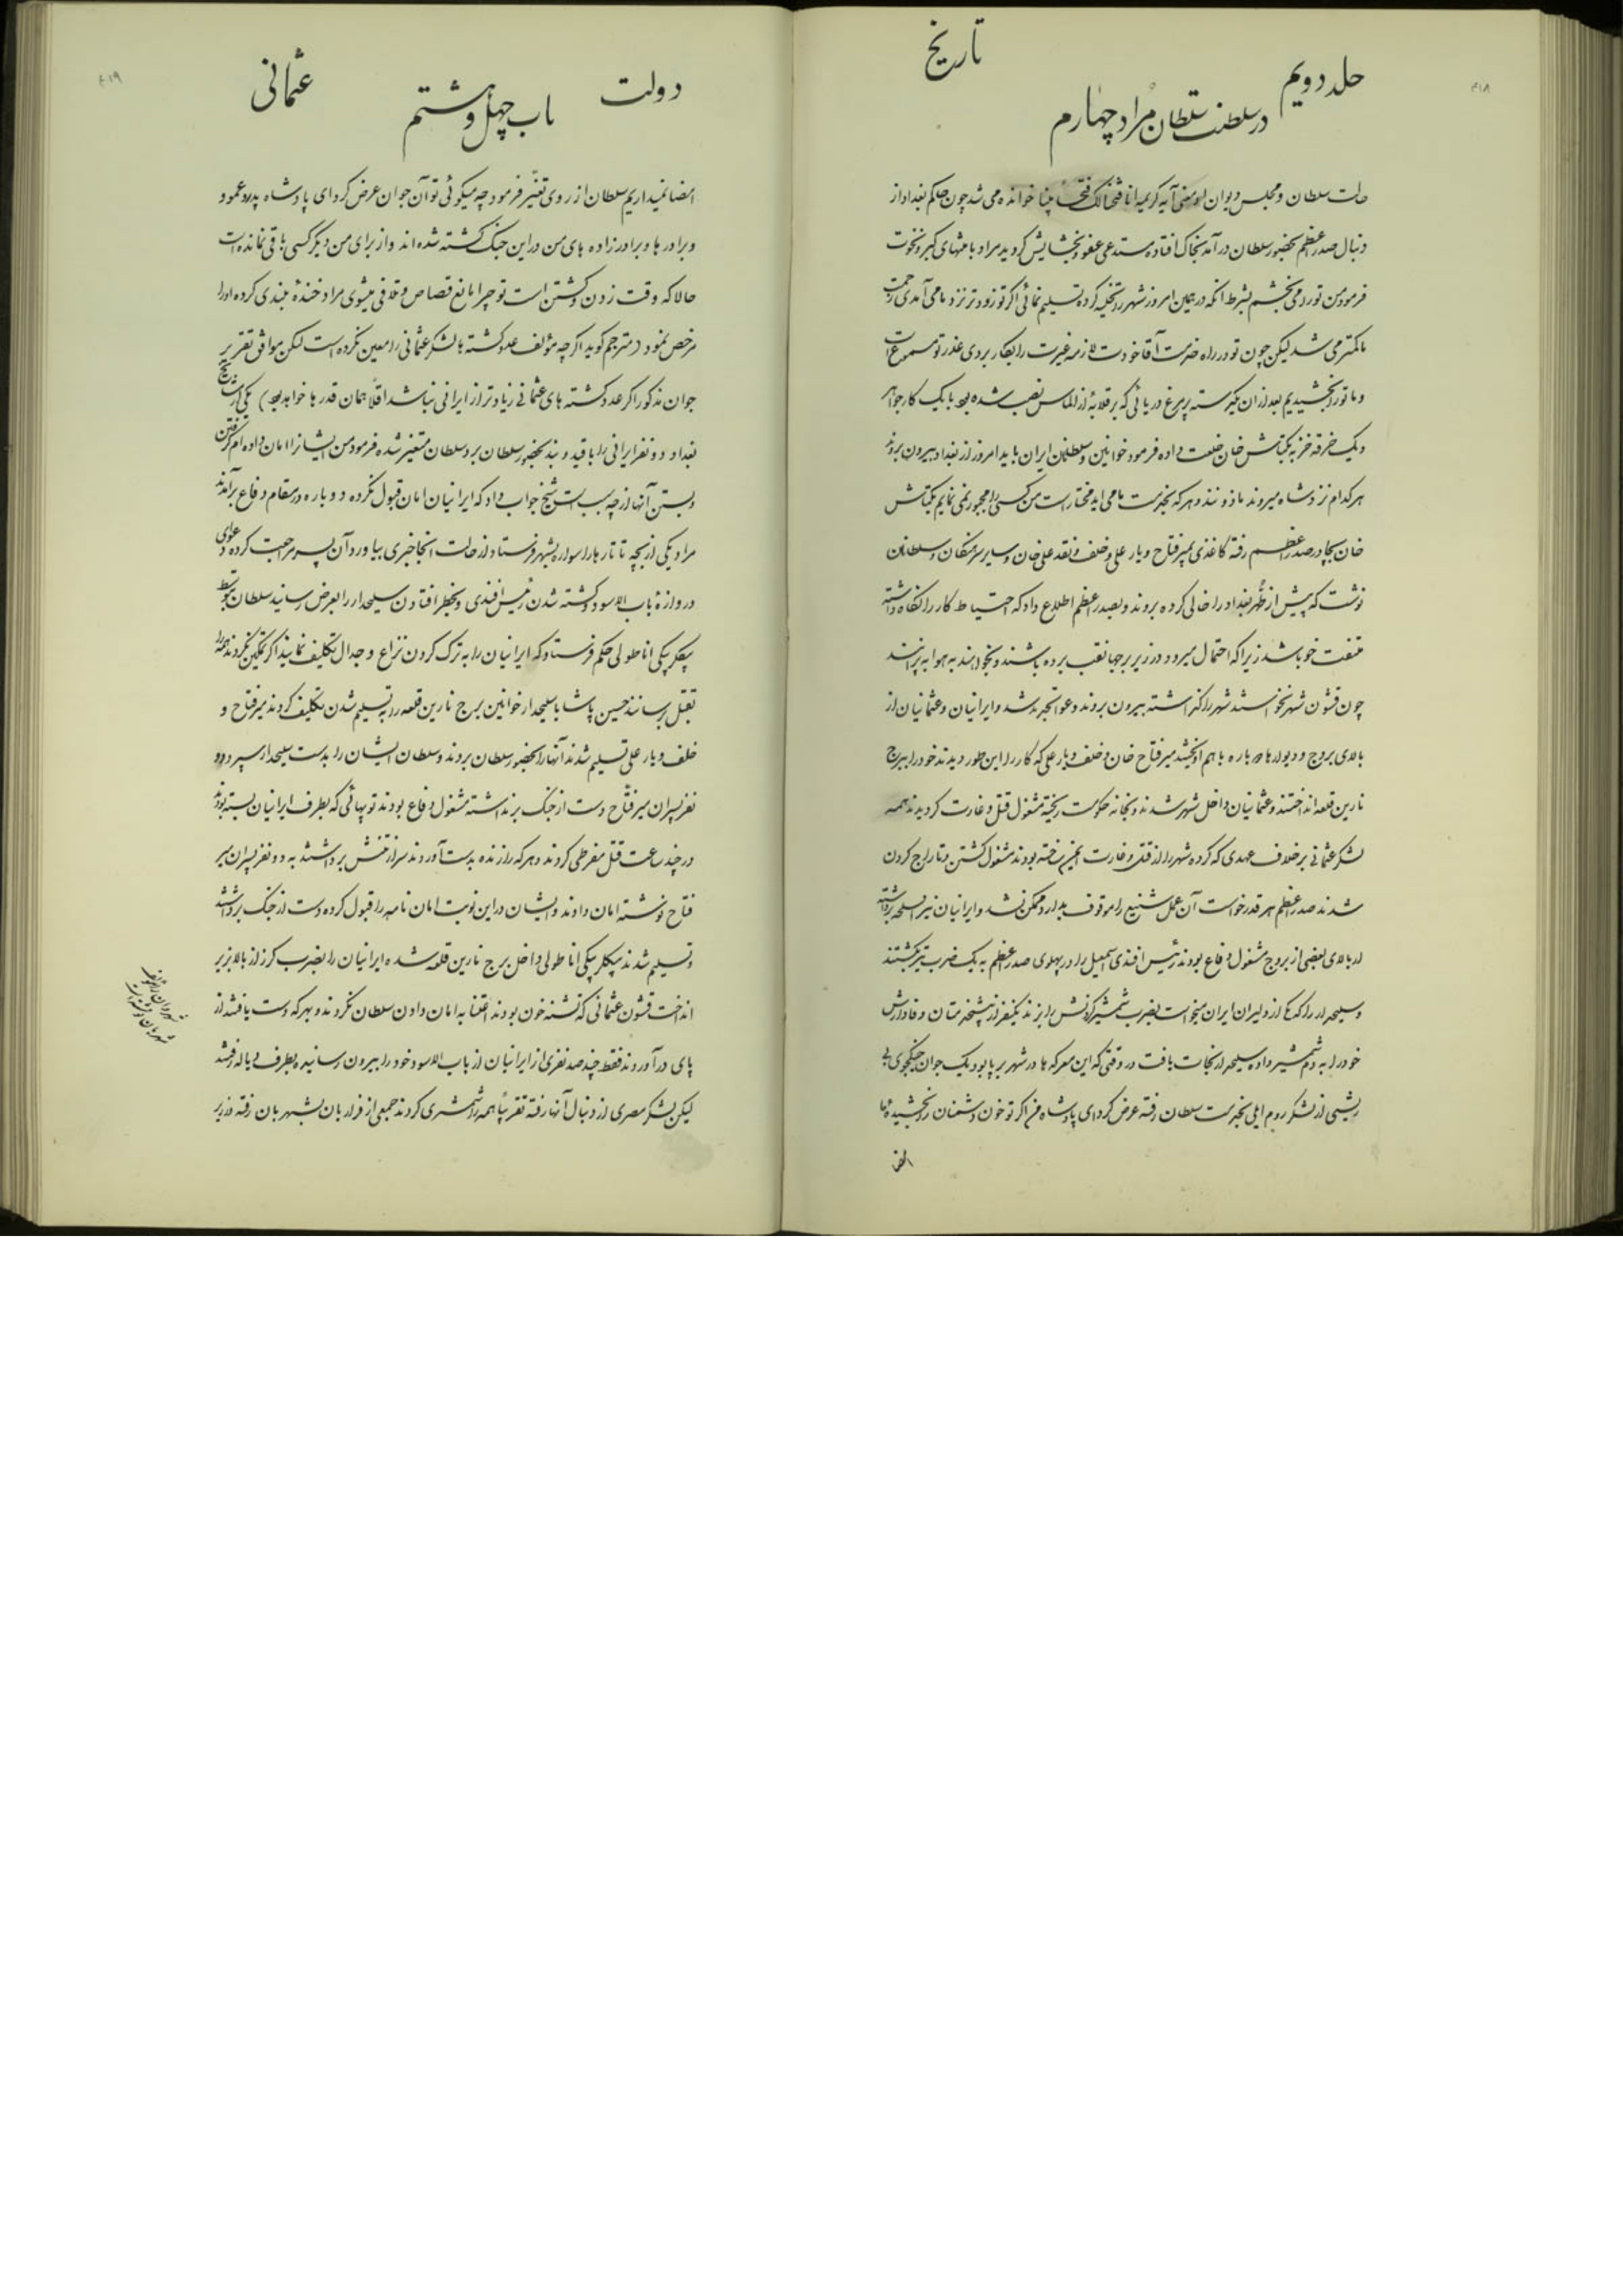 ۴۱۸
جلد دویم
تاریخ
در سلطنت سلطان مراد چهارم
حالت سلطان و مجلس دیوان آیه کریمه انا فتحنا لک فتحاً مبینا خوانده می شد چون حاکم بغداد از
دنبال صدر اعظم بحضور سلطان در آمد بخاک افتاده مستدعی عفو و بخشایش گردید مراد با منتهای کبر و نخوت
فرمود من تو را می بخشم بشرط آنکه در همین امروز شهر را تخلیه کرده تسلیم نمائی اگر تو زودتر نزد ما می آمدی زحمت
ما کمتر می شد لیکن چون تو در راه خدمت آقا خودت لازمه غیرت را بکار بردی عذر تو مسموع است
و ما تو را بخشیدیم بعد از آن یک دسته پر مرغ دریائی که بر قلابه از الماس نصب شده بود با یک کارد جواهر
و یک خرقه خز به بکتاش خان خلعت داده فرمود خوانین و سلطانان ایران باید امروز از بغداد بیرون بروند
هر کدام نزد شاه میروند ماذونند و هر که بخدمت ما می اید مختار است من کسی را مجبور نمی نمایم بکتاش
خان بچادر صدر اعظم رفته کاغذی بمیر فتاح و یار علی و خلف و نقد علی خان و سایر سرهنگان و سلطانان
نوشت که پیش از ظهر بغداد را خالی کرده بروند و بصدر اعظم اطلاع داد که احتیاط کار را نگاه داشته
ملتفت خود باشد زیرا که احتمال میرود در زیر برجها نقب برده باشند و بخواهند به هوا بپرانند
چون قشون شهر نخواستند شهر را گذاشته بیرون بروند دعوا تجدید شد و ایرانیان و عثمانیان از
بالای بروج و دیوارها دوباره با هم آویختند میر فتاح خان و خلف و یار علی که کار را این طور دیدند خود را ببرج
نارین قلعه انداختند و عثمانیان داخل شهر شدند و بخانه حکومت ریخته مشغول قتل و غارت گردیدند همه
لشکر عثمانی بر خلاف عهدی که کرده شهر را از قتل و غارت ایمن ساخته بودند مشغول کشتن و تاراج کردن
شدند صدر اعظم هر قدر خواست آن عمل شنیع را موقوف بدارد ممکن نشد و ایرانیان نیز اسلحه برداشته
از بالای بعضی از بروج مشغول دفاع بودند رئیس افندی اسمعیل را در پهلوی صدر اعظم به یک ضرب تیر بکشتند
و سلیحدار را که یکی از دلیران ایران میخواست بضرب شمشیر گردنش را بزند یکنفر از پیشخدمتان وفادارش
خود را به دم شمشیر داده سلیحدار نجات یافت در وقتی که این معرکه ها در شهر بر پا بود یک جوان جنگجوی بی
ریشی از لشکر روم ایلی بخدمت سلطان رفته عرض کرد ای پادشاه من اگر تو خون دشمنان را بخشیده ما
امض
۴۱۹
دولت
عثمانی
باب چهل و هشتم
امضا نمیداریم سلطان از روی تغیّر فرمود چه میگوئی تو آن جوان عرض کرد ای پادشاه پدر و عمو و
و برادرها و برادر زاده های من در این جنگ کشته شده اند و از برای من دیگر کسی باقی نمانده است
حالا که وقت زدن و کشتن است تو چرا مانع قصاص و تلافی میشوی مراد خندهٔ بلندی کرده او را
مرخص نمود (مترجم گوید اگرچه مؤلف عدد کشته های لشکر عثمانی را معین نکرده است لکن موافق تقریر
جوان مذکور اگر عدد کشته های عثمانی زیادتر از ایرانی نباشد اقلاً همان قدرها خواهد بود) یکی از مشایخ
بغداد دو نفر ایرانی را با قید و بند بحضور سلطان برد سلطان متغیر شده فرمود من ایشان را امان داده ام گرفتن
و بستن آنها از چه سبب است شیخ جواب داد که ایرانیان امان قبول نکرده دوباره در مقام دفاع برآمدند
مراد یکی از بچه تاتارها را سواره بشهر فرستاد از حالت آنجا خبری بیاورد آن پسر مراجعت کرده دعوای
دروازهٔ باب الاسود و کشته شدن رئیس افندی و بخطر افتادن سلیحدار را بعرض رسانید سلطان بتوسط
بیگلربیگی اناطولی حکم فرستاد که ایرانیان را به ترک کردن نزاع و جدال تکلیف نمایند اگر تمکین نکردند همه را
بقتل برسانند حسین پاشا با سلیحدار خوانین برج نارین قلعه را به تسلیم شدن تکلیف کردند میر فتاح و
خلف و یار علی تسلیم شدند آنها را بحضور سلطان بردند و سلطان ایشان را بدست سلیحدار سپرد دو
نفر پسران میر فتّاح دست از جنگ بر نداشته مشغول دفاع بودند توپهائی که بطرف ایرانیان بسته بودند
در چند ساعت قتل مفرطی کردند و هر که را زنده بدست آوردند سر از تنش برداشتند به دو نفر پسران میر
فتاح نوشته امان دادند و ایشان در این نوبت امان نامه را قبول کرده دست از جنگ برداشتند
و تسلیم شدند بیگلربیگی اناطولی داخل برج نارین قلعه شده ایرانیان را بضرب گرز از بالا بزیر
انداخت قشون عثمانی که تشنه خون بودند اعتنا به امان دادن سلطان نکردند و بهر که دست یافتند از
پای در آوردند فقط چند صد نفری از ایرانیان از باب الاسود خود را بیرون رسانیده بطرف دیاله رفتند
لیکن لشکر مصری از دنبال آنها رفته تقریباً همه را شمشیری کردند جمعی از فراریان بشهربان رفته در زیر